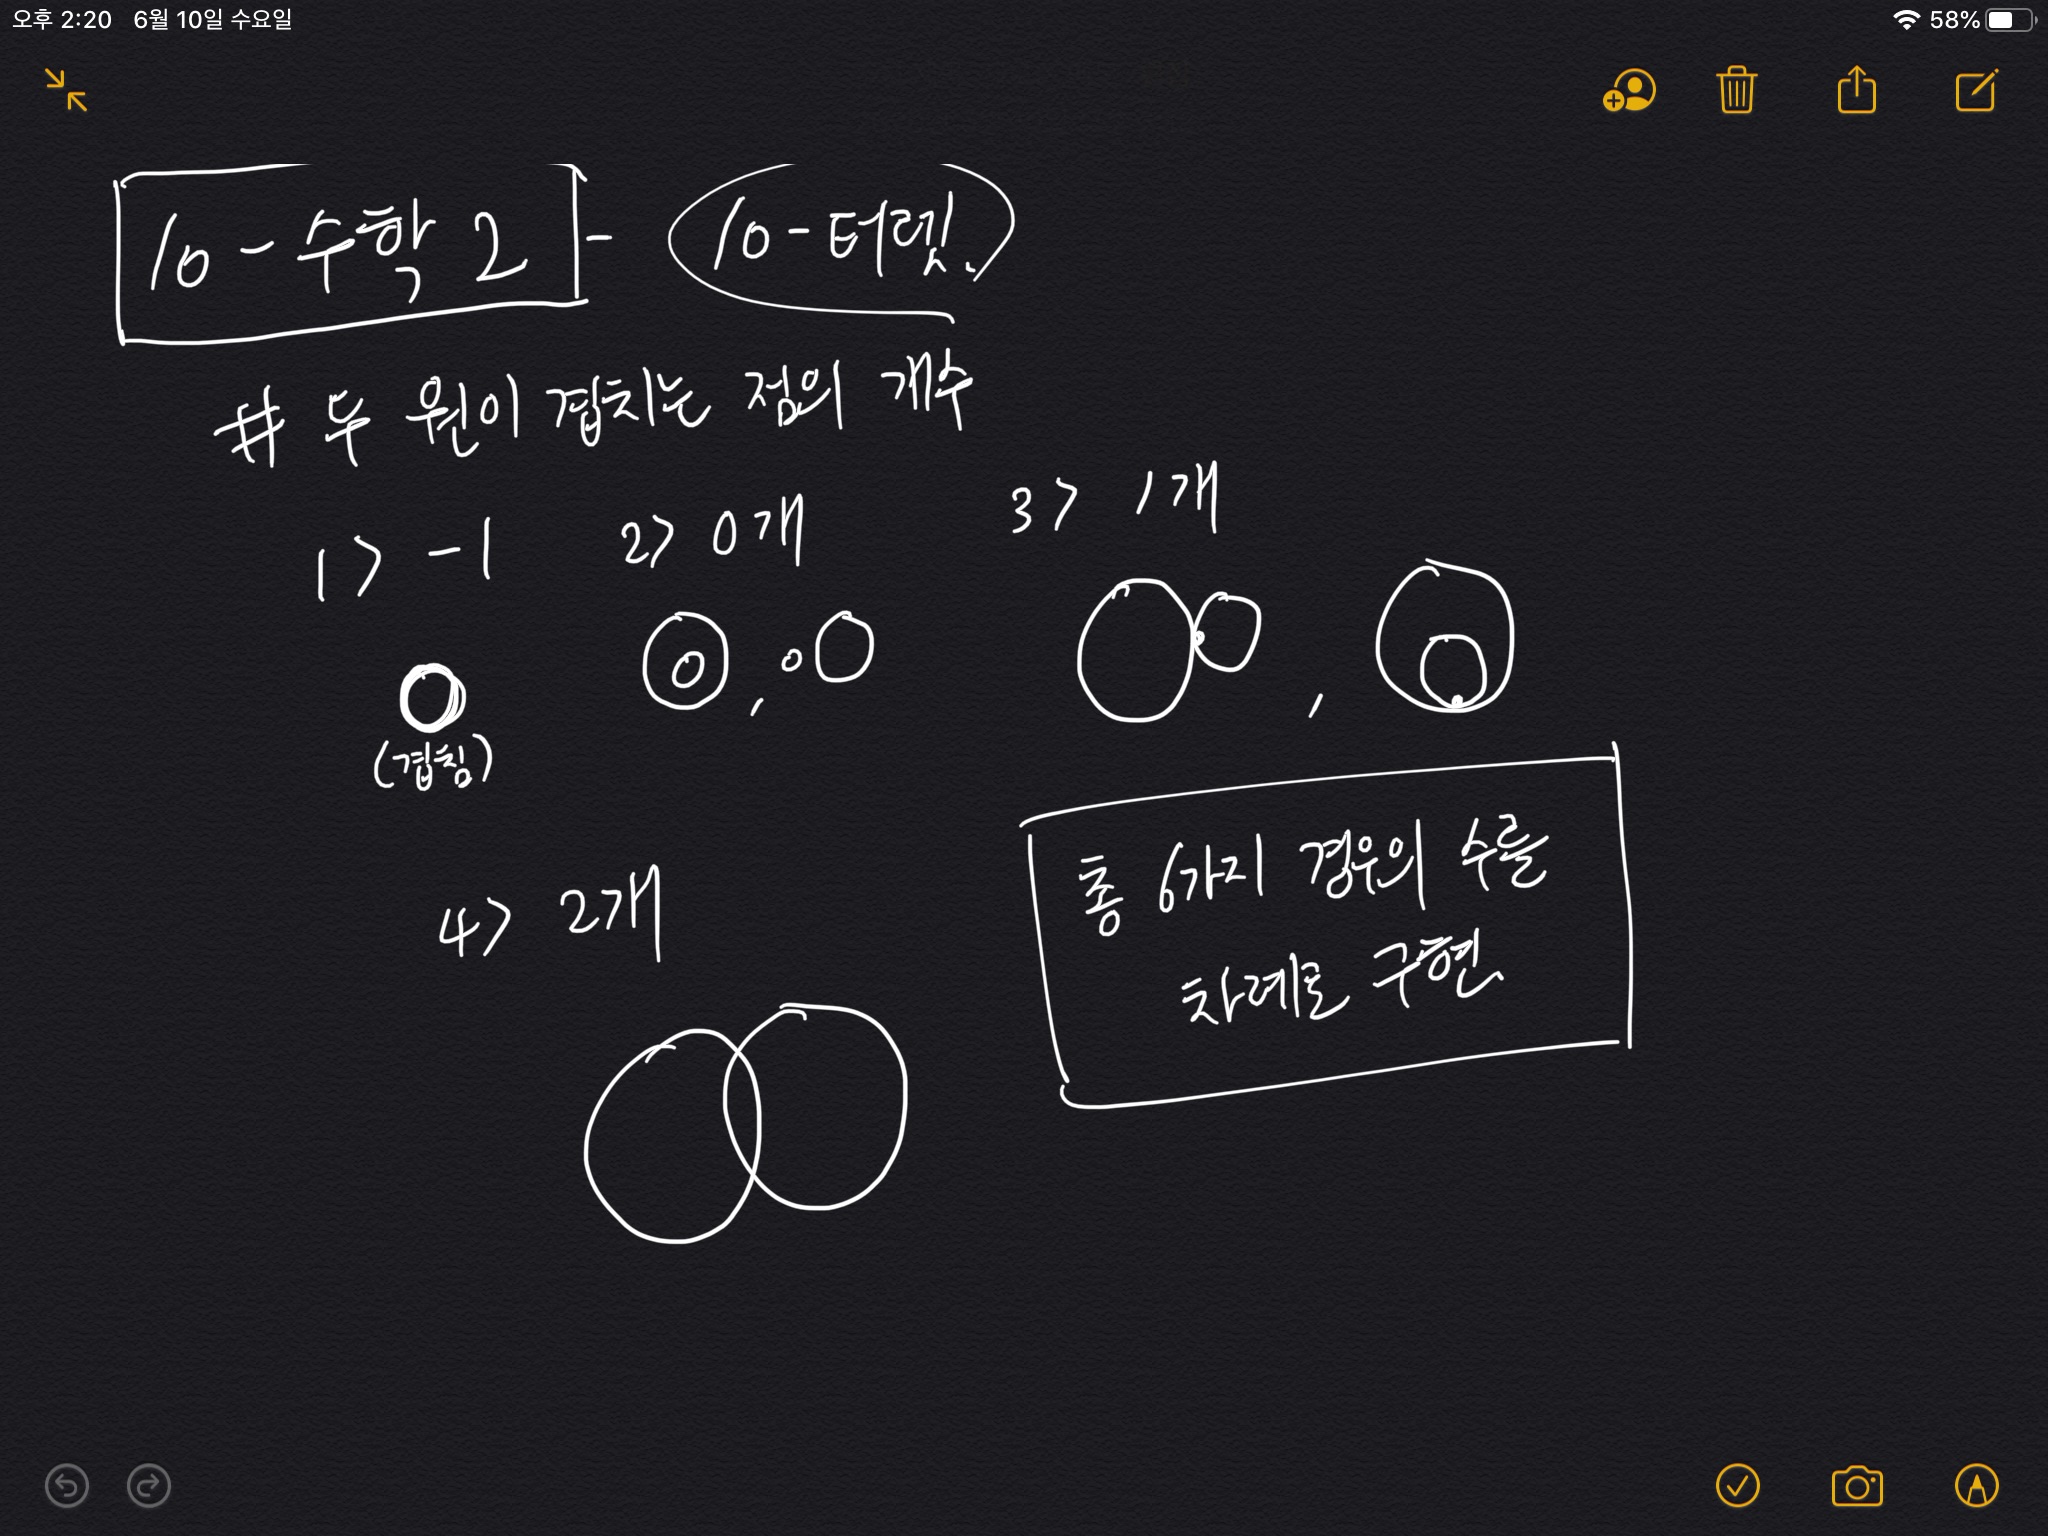 오후 2:20 6월 10일 수요일 58%
10-수학 2 - 10-터렛.
# 두 원이 겹치는 점의 개수
1> -1 2> 0개 3> 1개
, ,
(겹침)
4> 2개
총 6가지 경우의 수를
차례로 구현